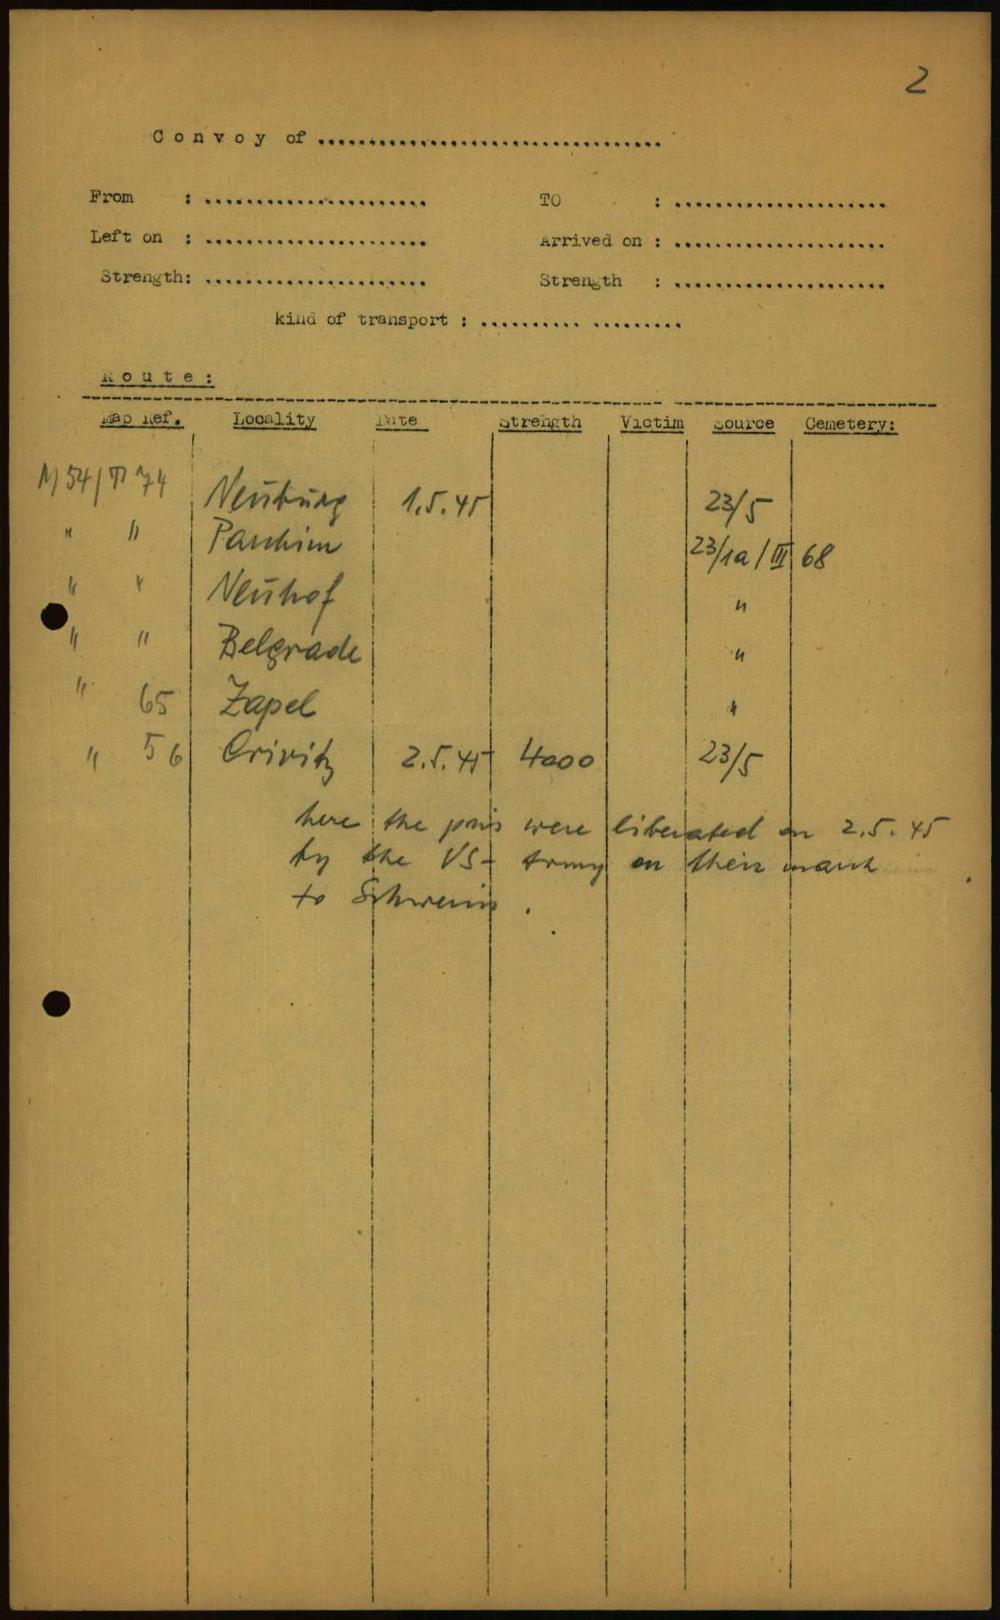 2
Convoy of ..................................
From : ......................
TO : .....................
Left on : ......................
Arrived on : .....................
Strength: ......................
Strength : .....................
kind of transport : .......... .........
Route:
Map Ref. Locality Date Strength Victim Source Cemetery:
M 54 / 74 Neuburg 1.5.45 23/5
" " Parchim 23/1a/III 68
" " Neuhof "
" " Belgrade "
" 65 Zapel "
" 56 Crivitz 2.5.45 4000 23/5
here the pris were liberated on 2.5.45
by the US-Army on their march
to Schwerin.